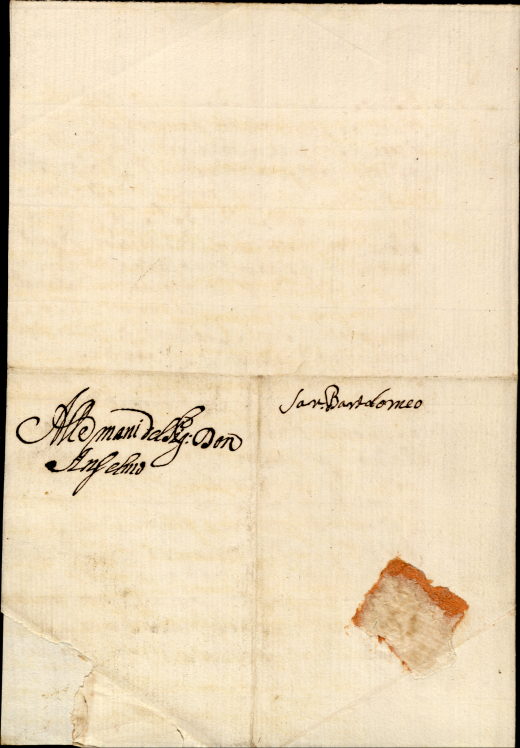 Alle mani del Sig: Don
Anselmo
San Bartolomeo